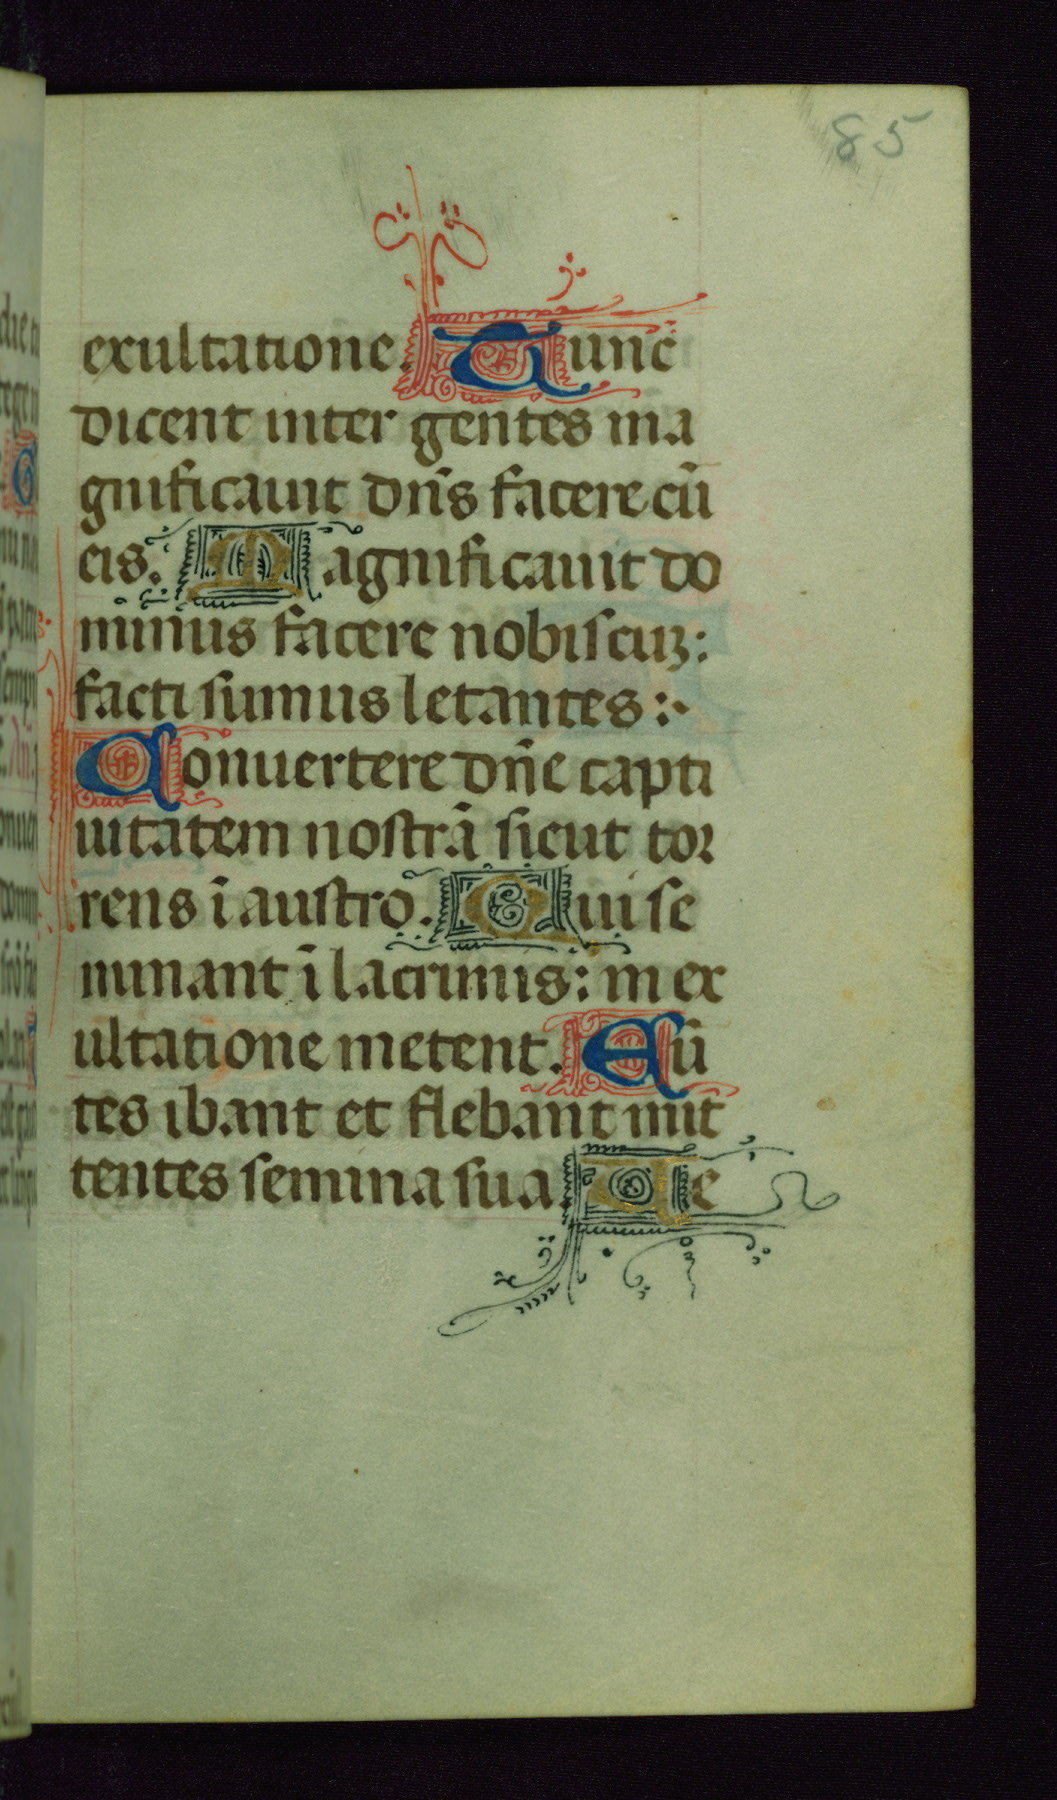 85
exultatione. Tunc̄
dicent inter gentes ma
gnificauit dn̄s facere cū
eis. Magnificauit do
minus facere nobiscuꝫ:
facti sumus letantes:
Conuertere dn̄e capti
uitatem nostrā sicut tor
rens ī austro. Qui se
minant ī lacrimis: in ex
ultatione metent. Eū
tes ibant et flebant mit̄
tentes semina sua. Ue